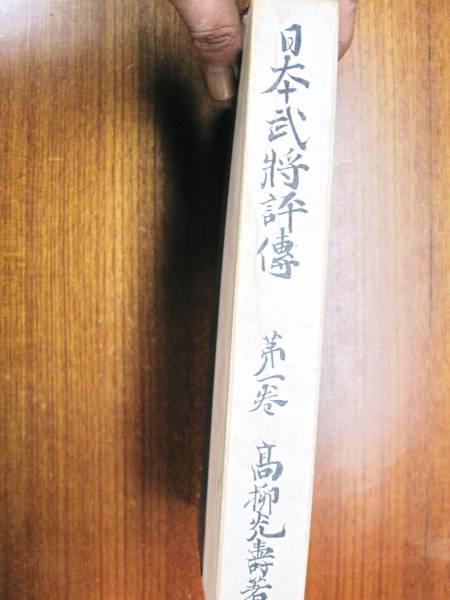 日本武將評傳
第一卷
高柳光壽著